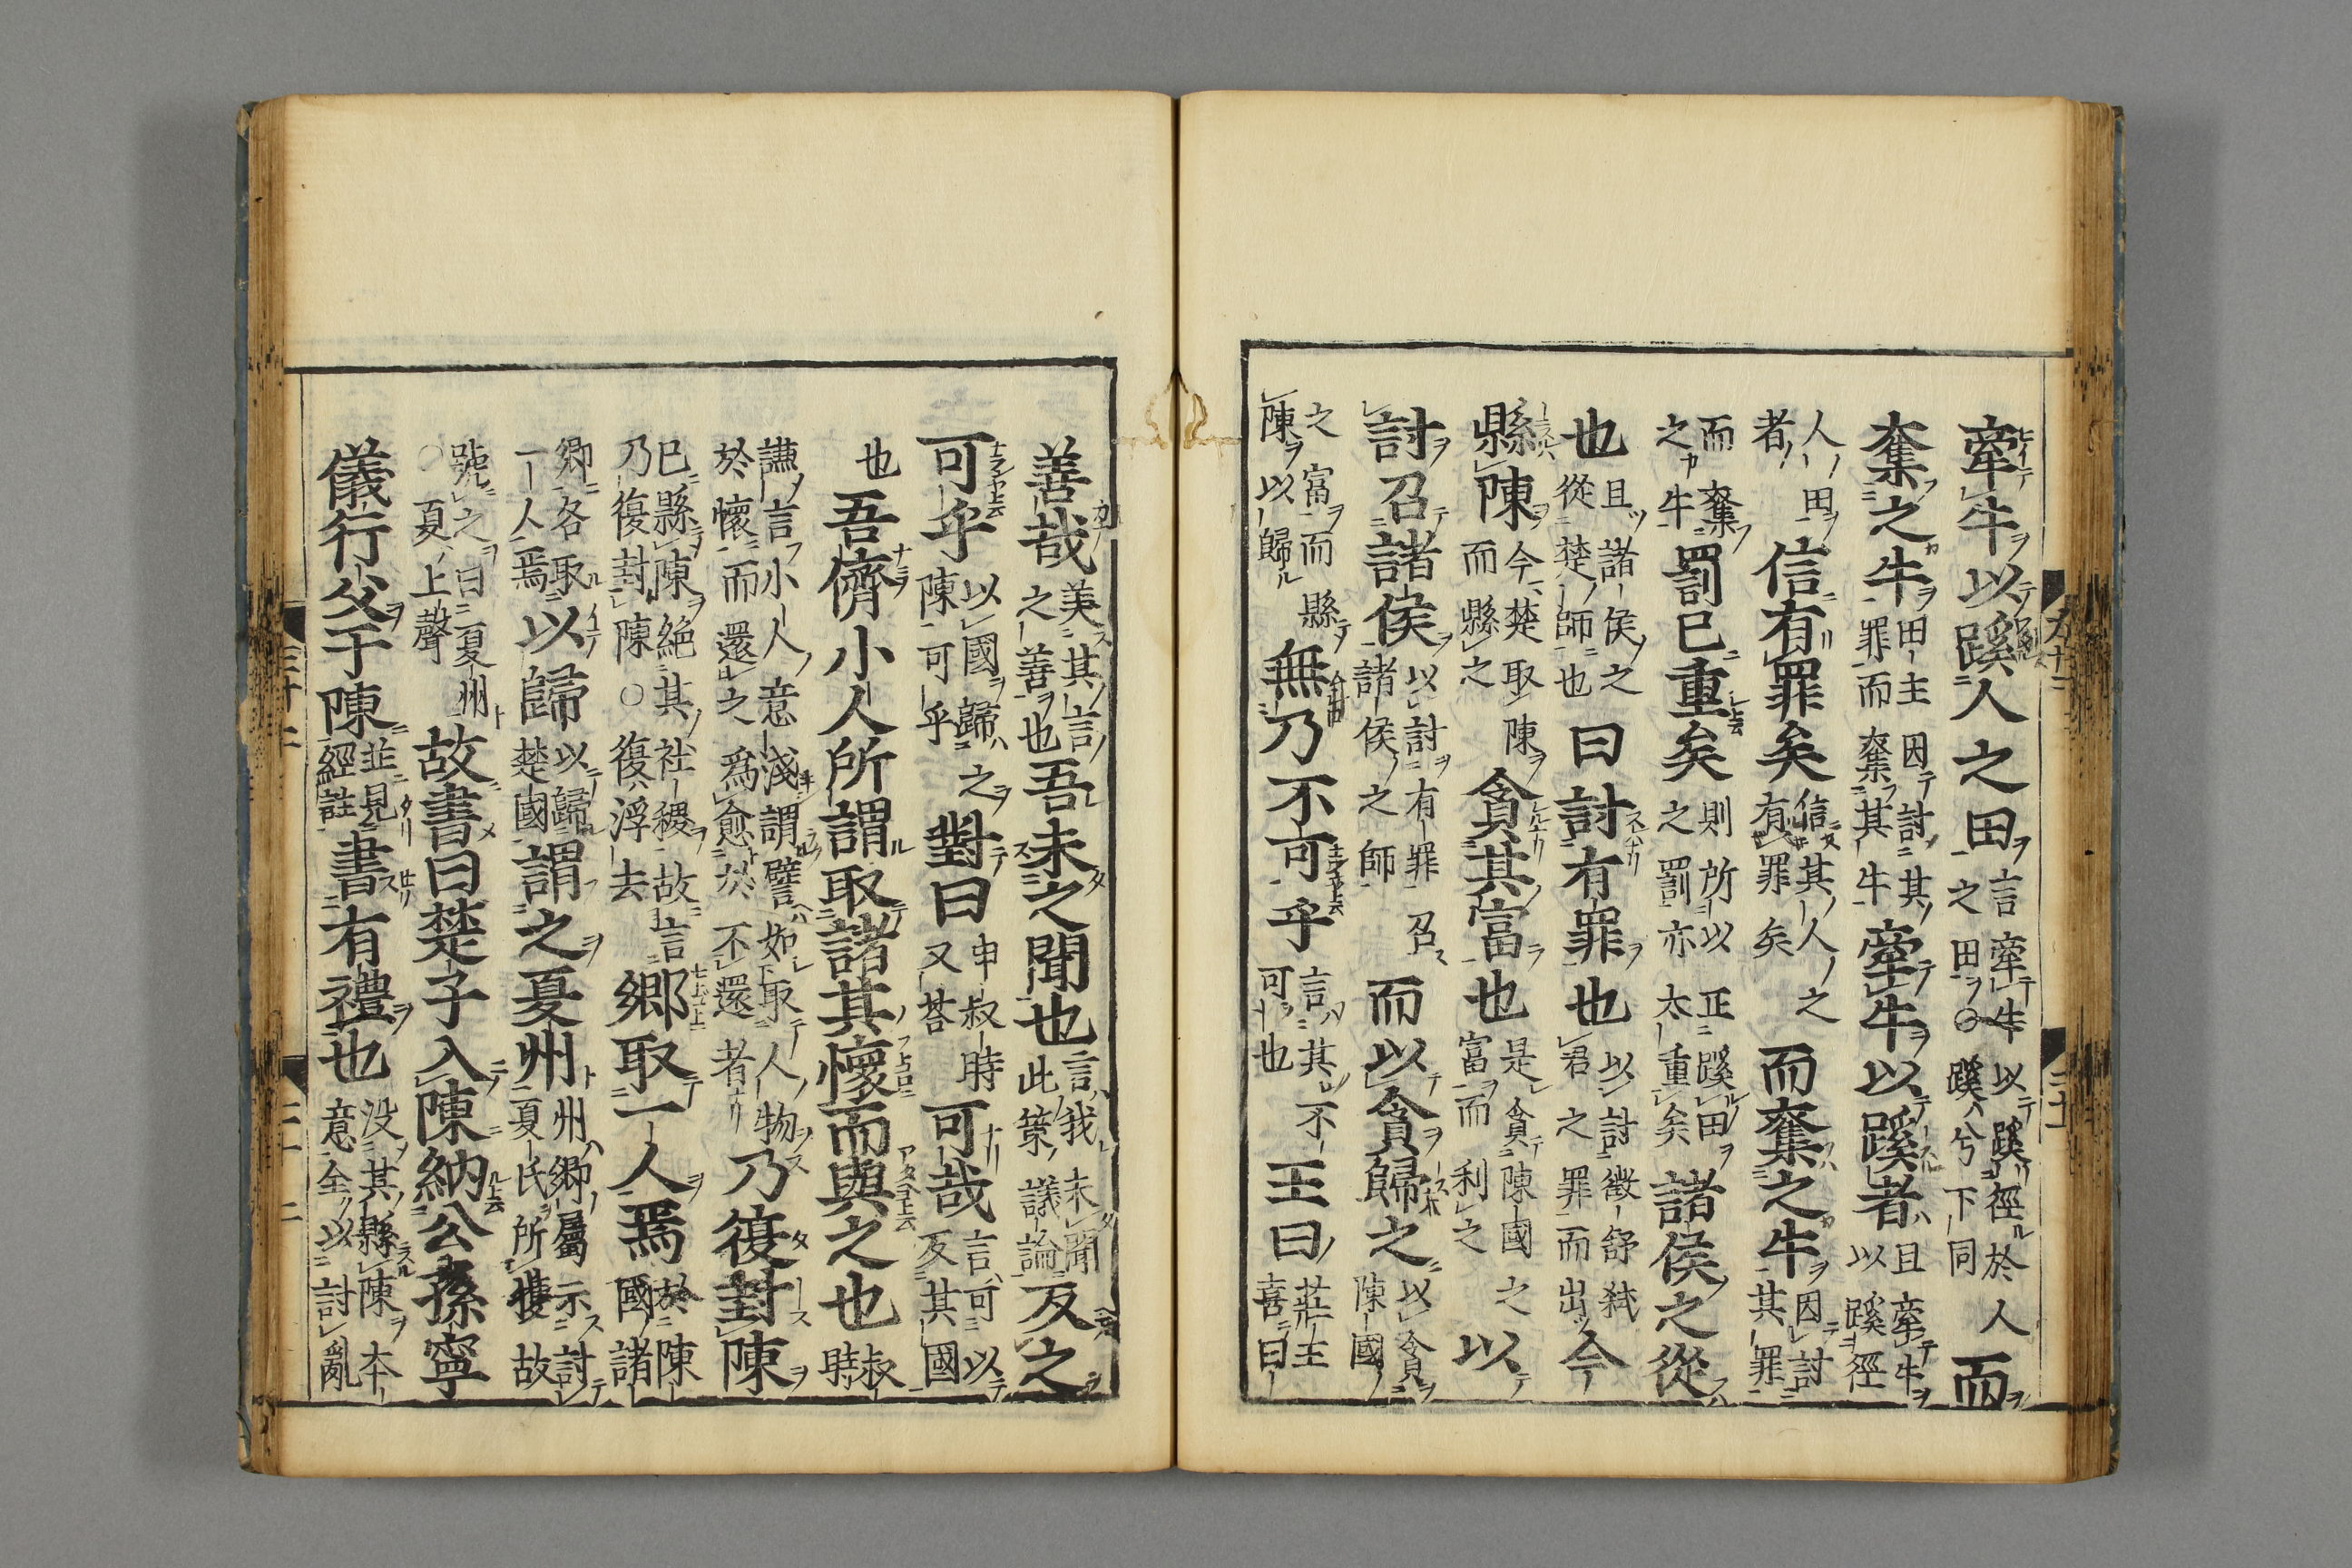 牽牛以蹊人之田言牽牛以蹊徑於人之田○蹊兮下同而
奪之牛田主因討其罪而奪其牛牽牛以蹊者且牽牛以蹊徑
人田者信有罪矣信其人之有罪矣而奪之牛因討其罪
而奪之牛罰已重矣則所以正蹊田之罰亦太重矣諸侯之從
也且諸侯之從楚師也曰討有罪也以討徵舒弑君之罪而出今
縣陳今楚取陳而縣之貪其富也是貪陳國之富而利之以
討召諸侯以討有罪召諸侯之師而以貪歸之以貪陳國
之富而縣陳以歸無乃不可乎言其不可也王曰莊王喜曰
善哉美其言之善也吾未之聞也言我未聞此策議論反之
可乎以國歸之陳可乎對曰申叔時又荅可哉言可以反其國
也吾儕小人所謂取諸其懷而與之也叔時
謙言小人意淺謂譬如取人物於懷而還之爲愈於不還者乃復封陳
已縣陳絕其社稷故言乃復封陳○復浮去鄉取一人焉於陳國諸
鄉各取一人焉以歸以歸楚國謂之夏州州鄉屬示討夏氏所獲故
號之曰夏州○夏上聲故書曰楚子入陳納公孫寧
儀行父于陳並見經註書有禮也沒其縣陳本意全以討亂